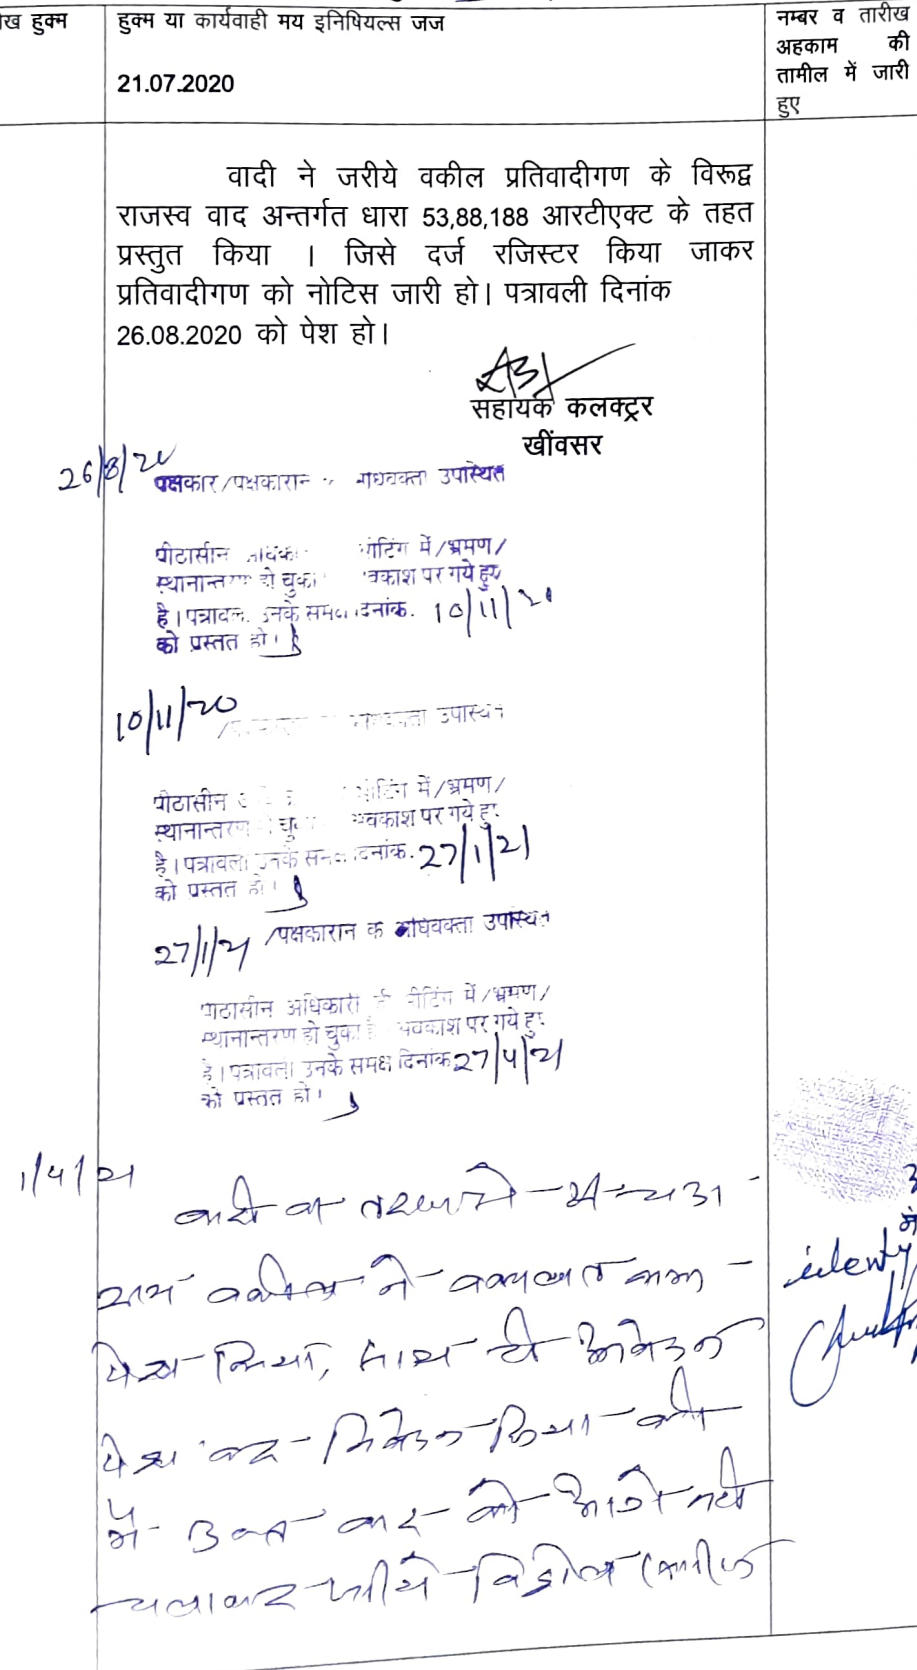 ख हुक्म
हुक्म या कार्यवाही मय इनिषियल्स जज
21.07.2020
नम्बर व तारीख
अहकाम की
तामील में जारी
हुए
वादी ने जरीये वकील प्रतिवादीगण के विरूद्व
राजस्व वाद अन्तर्गत धारा 53,88,188 आरटीएक्ट के तहत
प्रस्तुत किया । जिसे दर्ज रजिस्टर किया जाकर
प्रतिवादीगण को नोटिस जारी हो। पत्रावली दिनांक
26.08.2020 को पेश हो।
सहायक कलक्ट्रर
खींवसर
26/8/20
पक्षकार/पक्षकारान उपास्थित
पीठासीन मीटिंग में/भ्रमण/
स्थानान्तरण हो चुका पर गये हुए
है। पत्रावली उनके समक्ष दिनांक. 10/11/20
को प्रस्तत हो।
10/11/20
उपास्थित
पीठासीन मीटिंग में/भ्रमण/
स्थानान्तरण चुका पर गये हुए
है। पत्रावली उनके समक्ष दिनांक. 27/1/21
को प्रस्तत हो।
27/1/21 /पक्षकारान क अधिवक्ता उपास्थित
पीठासीन अधिकारी मीटिंग में/भ्रमण/
स्थानान्तरण हो चुका है अवकाश पर गये हुए
है। पत्रावली उनके समक्ष दिनांक 27/4/21
को प्रस्तत हो।
1/4/21
वादी
वकील ने वकालत नामा
पेश किया, साथ ही आवेदन
पेश कर निवेदन किया की
मै उक्त वाद को आगे नही
चलाकर
identify